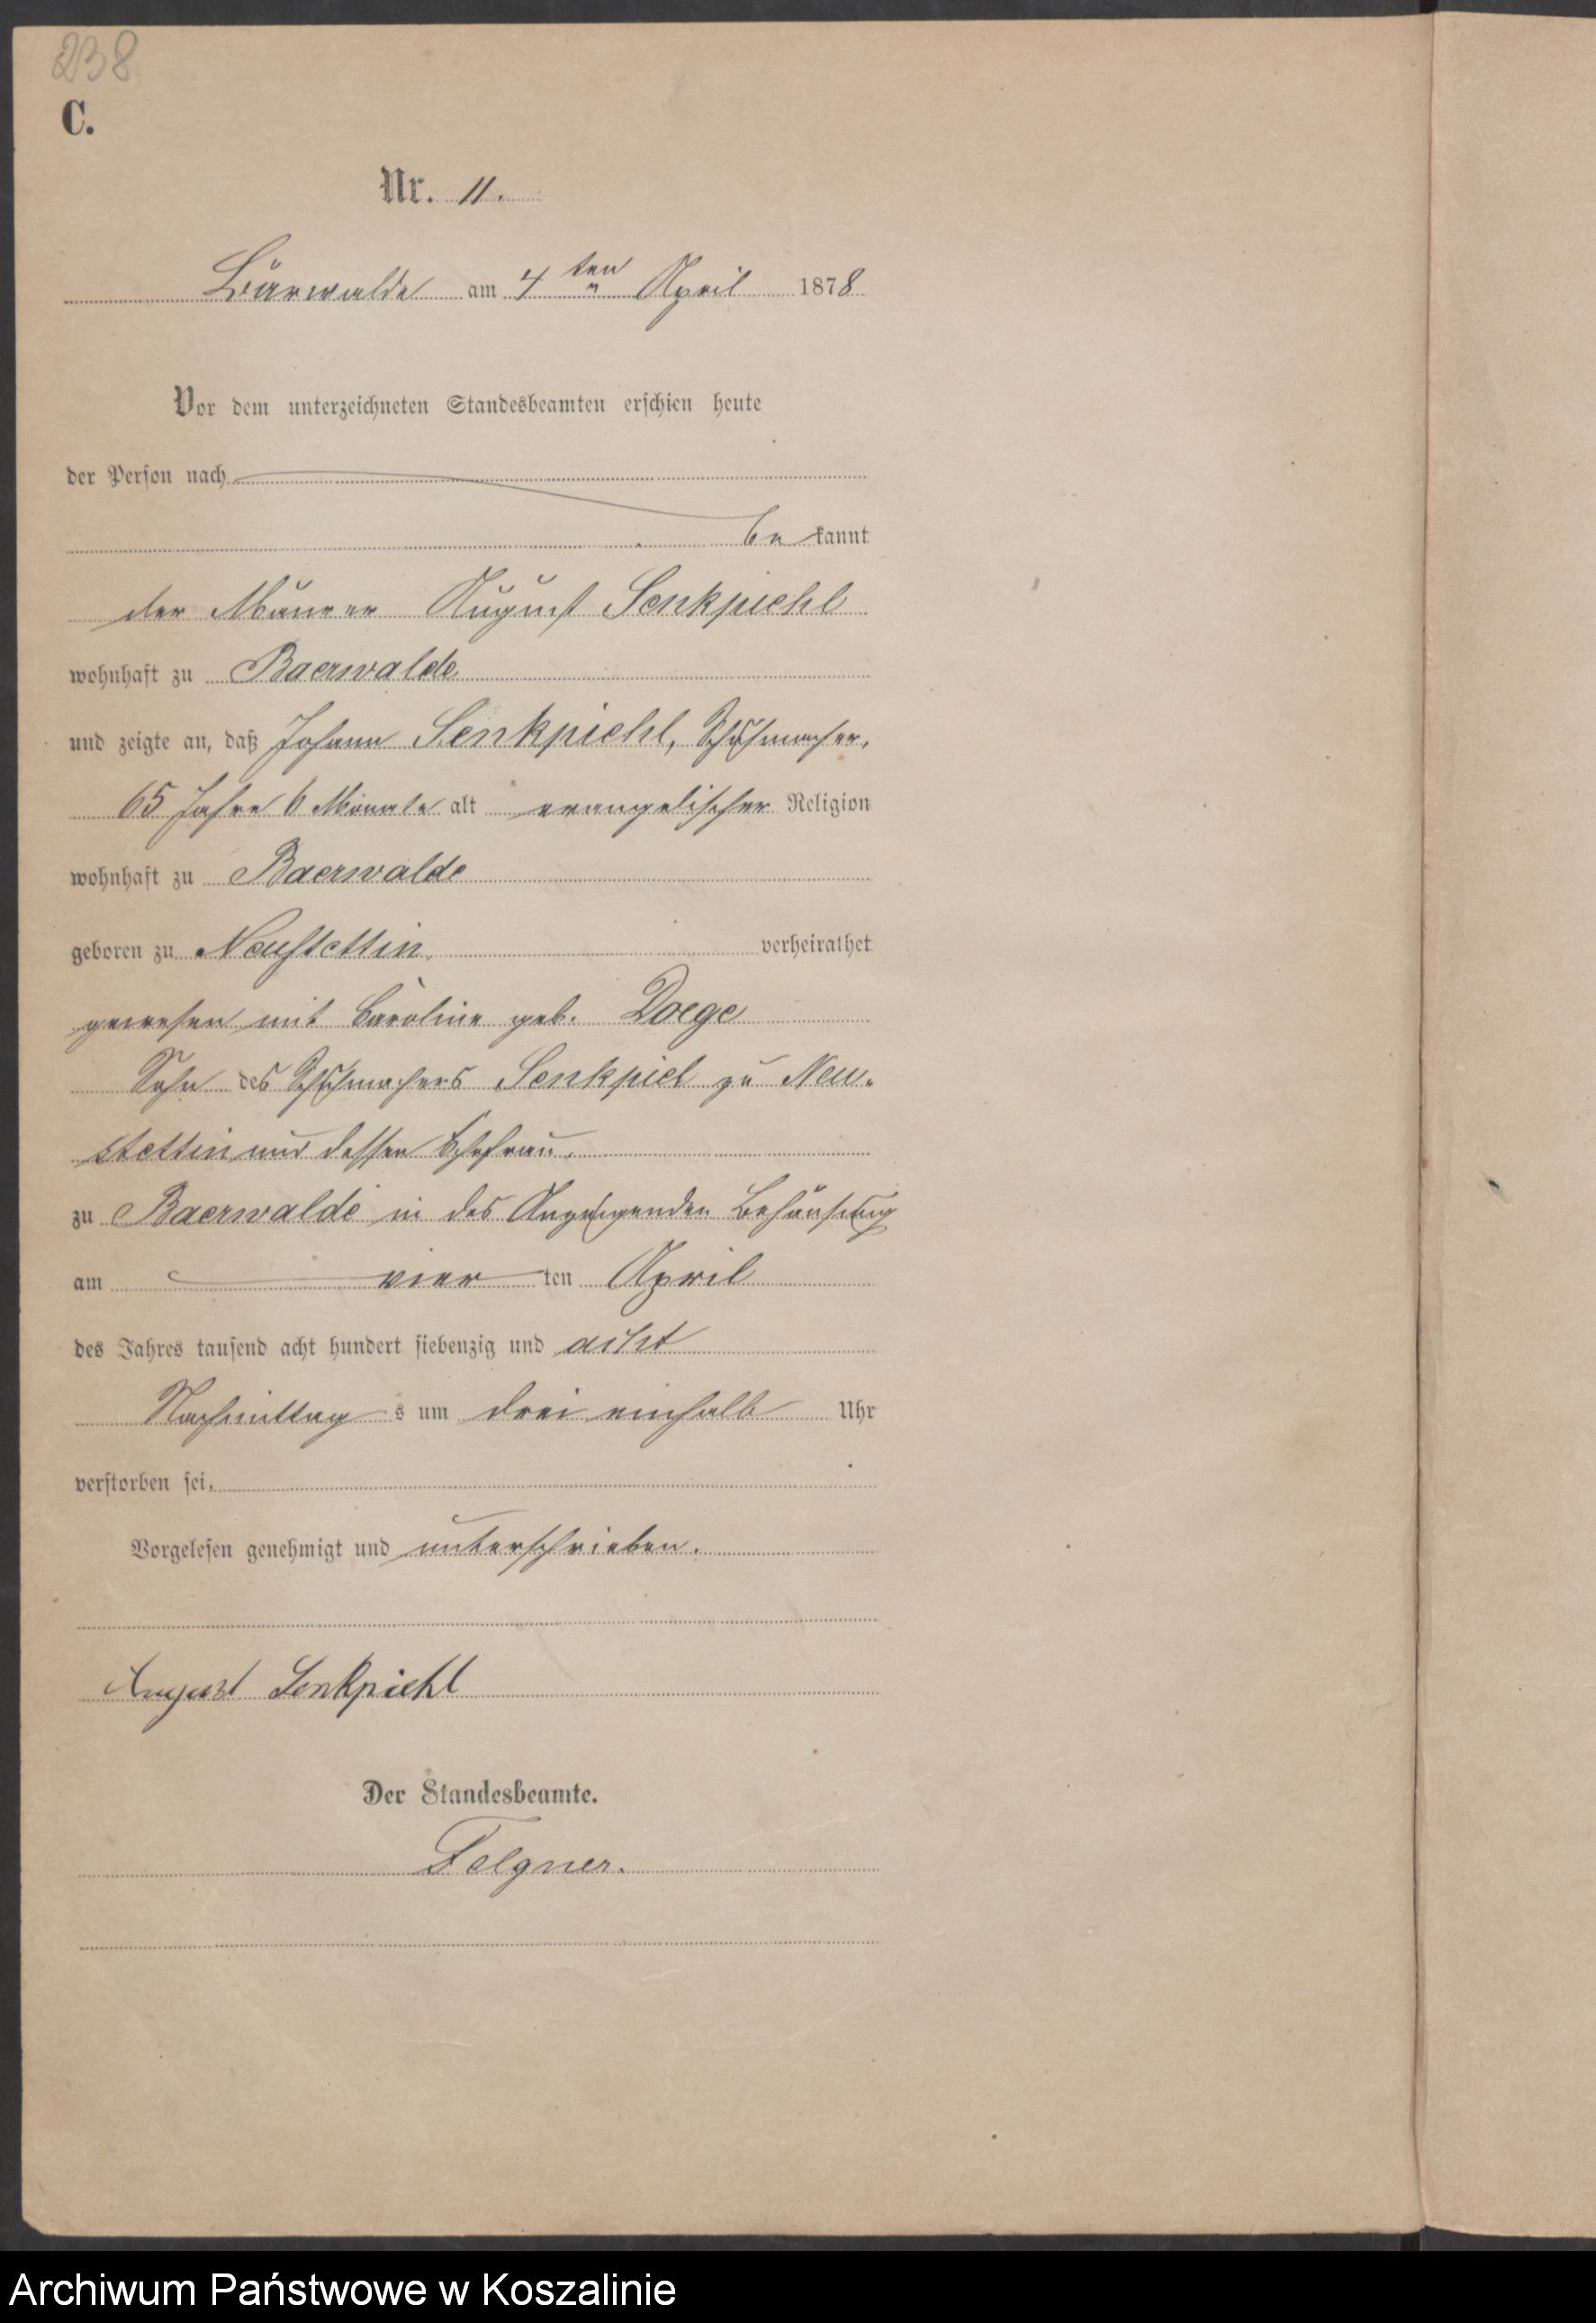 238
C.
Nr. 11.
Bärwalde am 4ten April 1878
Vor dem unterzeichneten Standesbeamten erschien heute
der Person nach
be kannt
der Maurer August Senkpiehl
wohnhaft zu Baerwalde
und zeigte an, daß Johann Senkpiehl, Schuhmacher,
65 Jahre 6 Monate alt evangelischer Religion
wohnhaft zu Baerwalde
geboren zu Neustettin, verheirathet
gewesen mit Caroline geb. Doege
Sohn des Schuhmachers Senkpiel zu Neu-
stettin und dessen Ehefrau,
zu Baerwalde in des Anzeigenden Behausung
am vier ten April
des Jahres tausend acht hundert siebenzig und acht
Nachmittag s um drei einhalb Uhr
verstorben sei.
Vorgelesen genehmigt und unterschrieben.
August Senkpiehl
Der Standesbeamte.
Felgner.
Archiwum Państwowe w Koszalinie